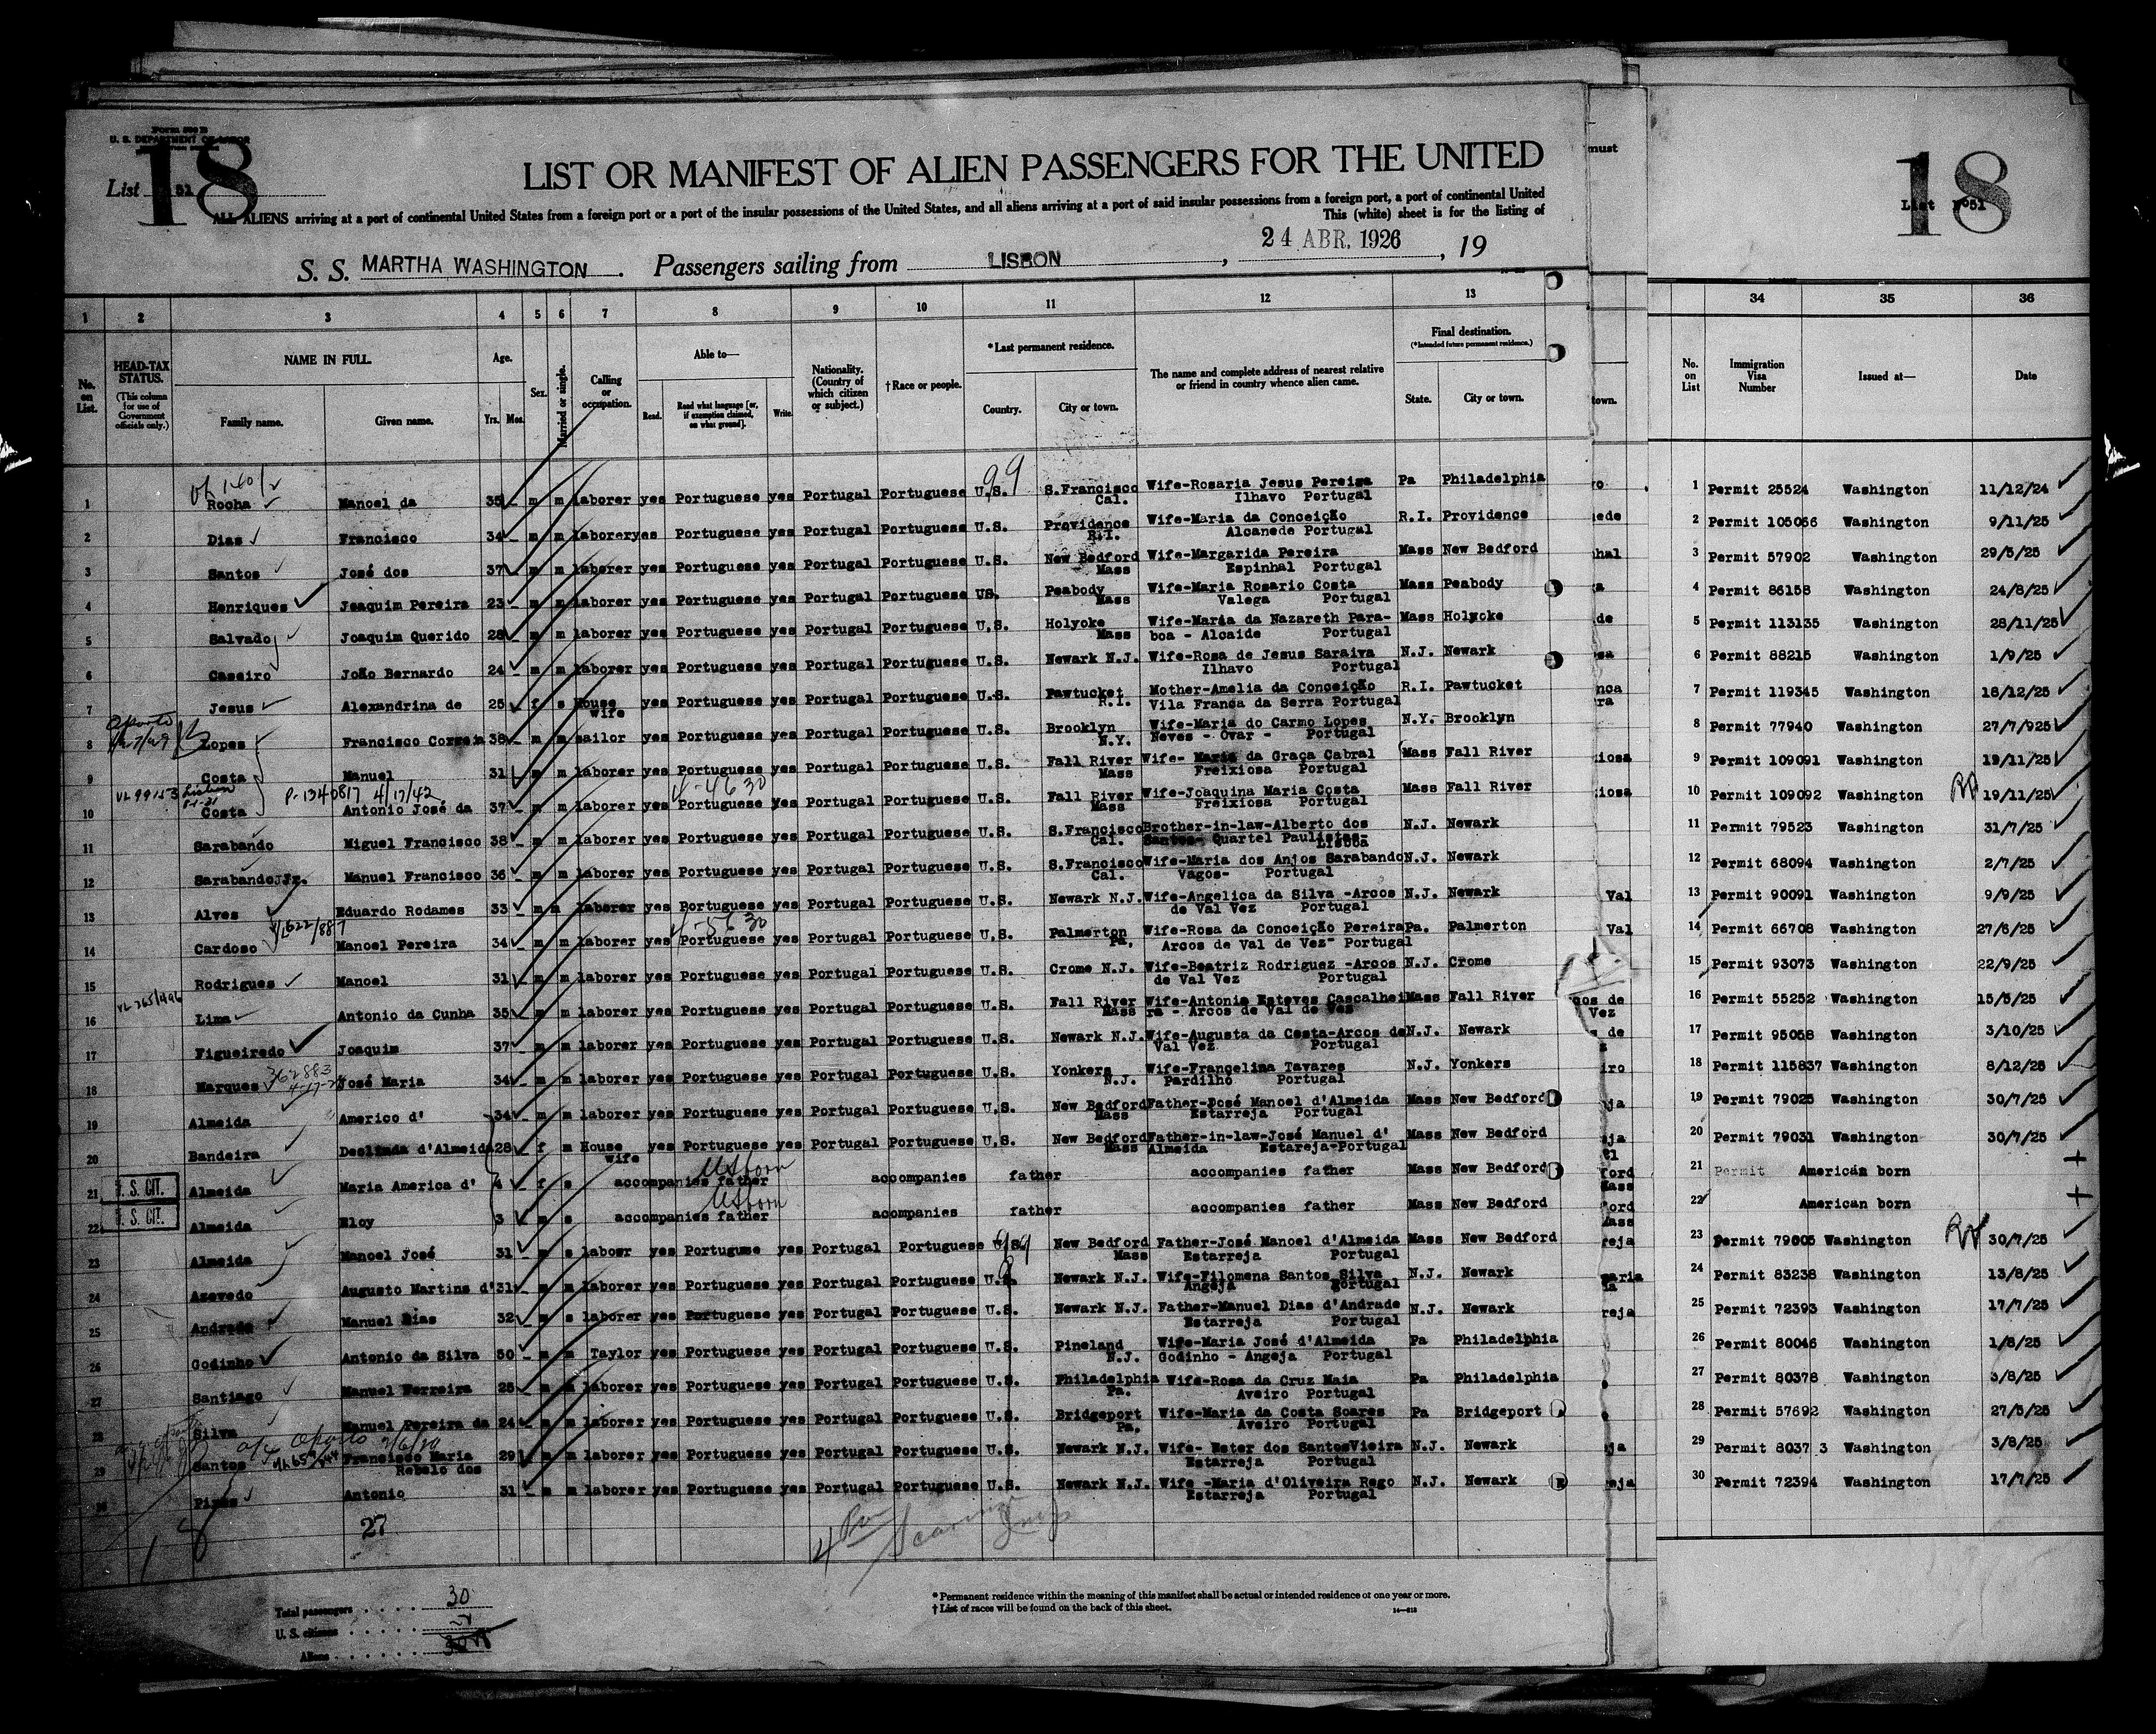 Form 500 B
U. S. DEPARTMENT OF LABOR
18
List 51
LIST OR MANIFEST OF ALIEN PASSENGERS FOR THE UNITED
ALL ALIENS arriving at a port of continental United States from a foreign port or a port of the insular possessions of the United States, and all aliens arriving at a port of said insular possessions from a foreign port, a port of continental United
This (white) sheet is for the listing of
S. S. MARTHA WASHINGTON . Passengers sailing from LISBON , 24 ABR. 1926 , 19
must
18
List No 51
1 2 3 4 5 6 7 8 9 10 11 12 13 34 35 36
No. on List. HEAD-TAX STATUS. (This column for use of Government officials only.) NAME IN FULL. Family name. Given name. Age. Yrs. Mos. Sex. Married or single. Calling or occupation. Able to— Read. Read what language [or, if exemption claimed, on what ground]. Write. Nationality. (Country of which citizen or subject.) †Race or people. *Last permanent residence. Country. City or town. The name and complete address of nearest relative or friend in country whence alien came. Final destination. (*Intended future permanent residence.) State. City or town. town. No. on List Immigration Visa Number Issued at— Date
99
1 Rocha Manoel da 35 m m laborer yes Portuguese yes Portugal Portuguese U.S. S.Francisco Cal. Wife-Rosaria Jesus Pereira Ilhavo Portugal Pa Philadelphia 1 Permit 25524 Washington 11/12/24
2 Dias Francisco 34 m m laborer yes Portuguese yes Portugal Portuguese U.S. Providence R.I. Wife-Maria da Conceição Alcanede Portugal R.I. Providence 2 Permit 105056 Washington 9/11/25
3 Santos José dos 37 m m laborer yes Portuguese yes Portugal Portuguese U.S. New Bedford Mass Wife-Margarida Pereira Espinhal Portugal Mass New Bedford 3 Permit 57902 Washington 29/5/25
4 Henriques Joaquim Pereira 23 m m laborer yes Portuguese yes Portugal Portuguese US. Peabody Mass Wife-Maria Rosario Costa Valega Portugal Mass Peabody 4 Permit 86158 Washington 24/8/25
5 Salvado Joaquim Querido 28 m m laborer yes Portuguese yes Portugal Portuguese U.S. Holyoke Mass Wife-Maria da Nazareth Paraboa - Alcaide Portugal Mass Holyoke 5 Permit 113135 Washington 28/11/25
6 Caseiro João Bernardo 24 m m laborer yes Portuguese yes Portugal Portuguese U.S. Newark N.J. Wife-Rosa de Jesus Saraiva Ilhavo Portugal N.J. Newark 6 Permit 88215 Washington 1/9/25
7 Jesus Alexandrina de 25 f s House wife yes Portuguese yes Portugal Portuguese U.S. Pawtucket R.I. Mother-Amelia da Conceição Vila Franca da Serra Portugal R.I. Pawtucket 7 Permit 119345 Washington 18/12/25
8 Lopes Francisco Correia 38 m m sailor yes Portuguese yes Portugal Portuguese U.S. Brooklyn N.Y. Wife-Maria do Carmo Lopes Neves - Ovar - Portugal N.Y. Brooklyn 8 Permit 77940 Washington 27/7/925
9 Costa Manuel 31 m m laborer yes Portuguese yes Portugal Portuguese U.S. Fall River Mass Wife- Maria da Graça Cabral Freixiosa Portugal Mass Fall River 9 Permit 109091 Washington 19/11/25
VL 99153 Lisbon P-1340817 4/17/42 4-4630
10 Costa Antonio José da 37 m m laborer yes Portuguese yes Portugal Portuguese U.S. Fall River Mass Wife-Joaquina Maria Costa Freixiosa Portugal Mass Fall River 10 Permit 109092 Washington 19/11/25
11 Sarabando Miguel Francisco 38 m m laborer yes Portuguese yes Portugal Portuguese U.S. S.Francisco Cal. Brother-in-law-Alberto dos Santos- Quartel Paulistas- Lisboa N.J. Newark 11 Permit 79523 Washington 31/7/25
12 Sarabando,Jr. Manuel Francisco 36 m m laborer yes Portuguese yes Portugal Portuguese U.S. S.Francisco Cal. Wife-Maria dos Anjos Sarabando Vagos- Portugal N.J. Newark 12 Permit 68094 Washington 2/7/25
13 Alves Eduardo Rodames 33 m m laborer yes Portuguese yes Portugal Portuguese U.S. Newark N.J. Wife-Angelica da Silva -Arcos de Val Vez Portugal N.J. Newark 13 Permit 90091 Washington 9/9/25
4-5630
14 Cardoso Manoel Pereira 34 m m laborer yes Portuguese yes Portugal Portuguese U.S. Palmerton Pa. Wife-Rosa da Conceição Pereira Arcos de Val de Vez- Portugal Pa. Palmerton 14 Permit 66708 Washington 27/6/25
15 Rodrigues Manoel 31 m m laborer yes Portuguese yes Portugal Portuguese U.S. Crome N.J. Wife-Beatriz Rodriguez -Arcos de Val Vez Portugal N.J. Crome 15 Permit 93073 Washington 22/9/25
16 Lima Antonio da Cunha 35 m m laborer yes Portuguese yes Portugal Portuguese U.S. Fall River Mass Wife-Antonia Esteves Cascalheira - Arcos de Val de Vez Mass Fall River 16 Permit 55252 Washington 15/5/25
17 Figueiredo Joaquim 37 m m laborer yes Portuguese yes Portugal Portuguese U.S. Newark N.J. Wife-Augusta da Costa-Arcos de Val Vez Portugal N.J. Newark 17 Permit 95058 Washington 3/10/25
18 Marques José Maria 34 m m laborer yes Portuguese yes Portugal Portuguese U.S. Yonkers N.J. Wife-Francelina Tavares Pardilho Portugal N.J. Yonkers 18 Permit 115837 Washington 8/12/25
19 Almeida Americo d' 34 m m laborer yes Portuguese yes Portugal Portuguese U.S. New Bedford Mass Father-José Manoel d'Almeida Estarreja Portugal Mass New Bedford 19 Permit 79025 Washington 30/7/25
20 Bandeira Deolinda d'Almeida 28 f m House wife yes Portuguese yes Portugal Portuguese U.S. New Bedford Mass Father-in-law-José Manuel d' Almeida Estareja-Portugal Mass New Bedford 20 Permit 79031 Washington 30/7/25
21 U. S. CIT. Almeida Maria America d' 4 f s accompanies father US born accompanies father accompanies father Mass New Bedford 21 Permit American born
22 U. S. CIT. Almeida Eloy 3 m s accompanies father US born acompanies father accompanies father Mass New Bedford 22 American born
23 Almeida Manoel José 31 m s laboer yes Portuguese yes Portugal Portuguese U.S. New Bedford Mass Father-José Manoel d'Almeida Estarreja Portugal Mass New Bedford 23 Permit 79005 Washington 30/7/25
24 Azevedo Augusto Martins d' 31 m m laborer yes Portuguese yes Portugal Portuguese U.S. Newark N.J. Wife-Filomena Santos Silva Angeja Portugal N.J. Newark 24 Permit 83238 Washington 13/8/25
25 Andrade Manuel Dias 32 m s laborer yes Portuguese yes Portugal Portuguese U.S. Newark N.J. Father-Manuel Dias d'Andrade Estarreja Portugal N.J. Newark 25 Permit 72393 Washington 17/7/25
26 Godinho Antonio da Silva 50 m m Taylor yes Portuguese yes Portugal Portuguese U.S. Pineland N.J. Wife-Maria José d'Almeida Godinho - Angeja Portugal Pa Philadelphia 26 Permit 80046 Washington 1/8/25
27 Santiago Manuel Ferreira 25 m m laborer yes Portuguese yes Portugal Portuguese U.S. Philadelphia Pa. Wife-Rosa da Cruz Maia Aveiro Portugal Pa Philadelphia 27 Permit 80378 Washington 3/8/25
28 Silva Manuel Pereira da 24 m m laborer yes Portuguese yes Portugal Portuguese U.S. Bridgeport Pa. Wife-Maria da Costa Soares Aveiro Portugal Pa Bridgeport 28 Permit 57692 Washington 27/5/25
29 Santos Francisco Maria Rebelo dos 29 m m laborer yes Portuguese yes Portugal Portuguese U.S. Newark N.J. Wife- Ester dos SantosVieira Estarreja Portugal N.J. Newark 29 Permit 8037 3 Washington 3/8/25
30 Antonio 31 m m laborer yes Portuguese yes Portugal Portuguese U.S. Newark N.J. Wife -Maria d'Oliveira Rego Estarreja Portugal N.J. Newark 30 Permit 72394 Washington 17/7/25
27
Total passengers 30
U. S. citizens
Aliens
* Permanent residence within the meaning of this manifest shall be actual or intended residence of one year or more.
† List of races will be found on the back of this sheet.